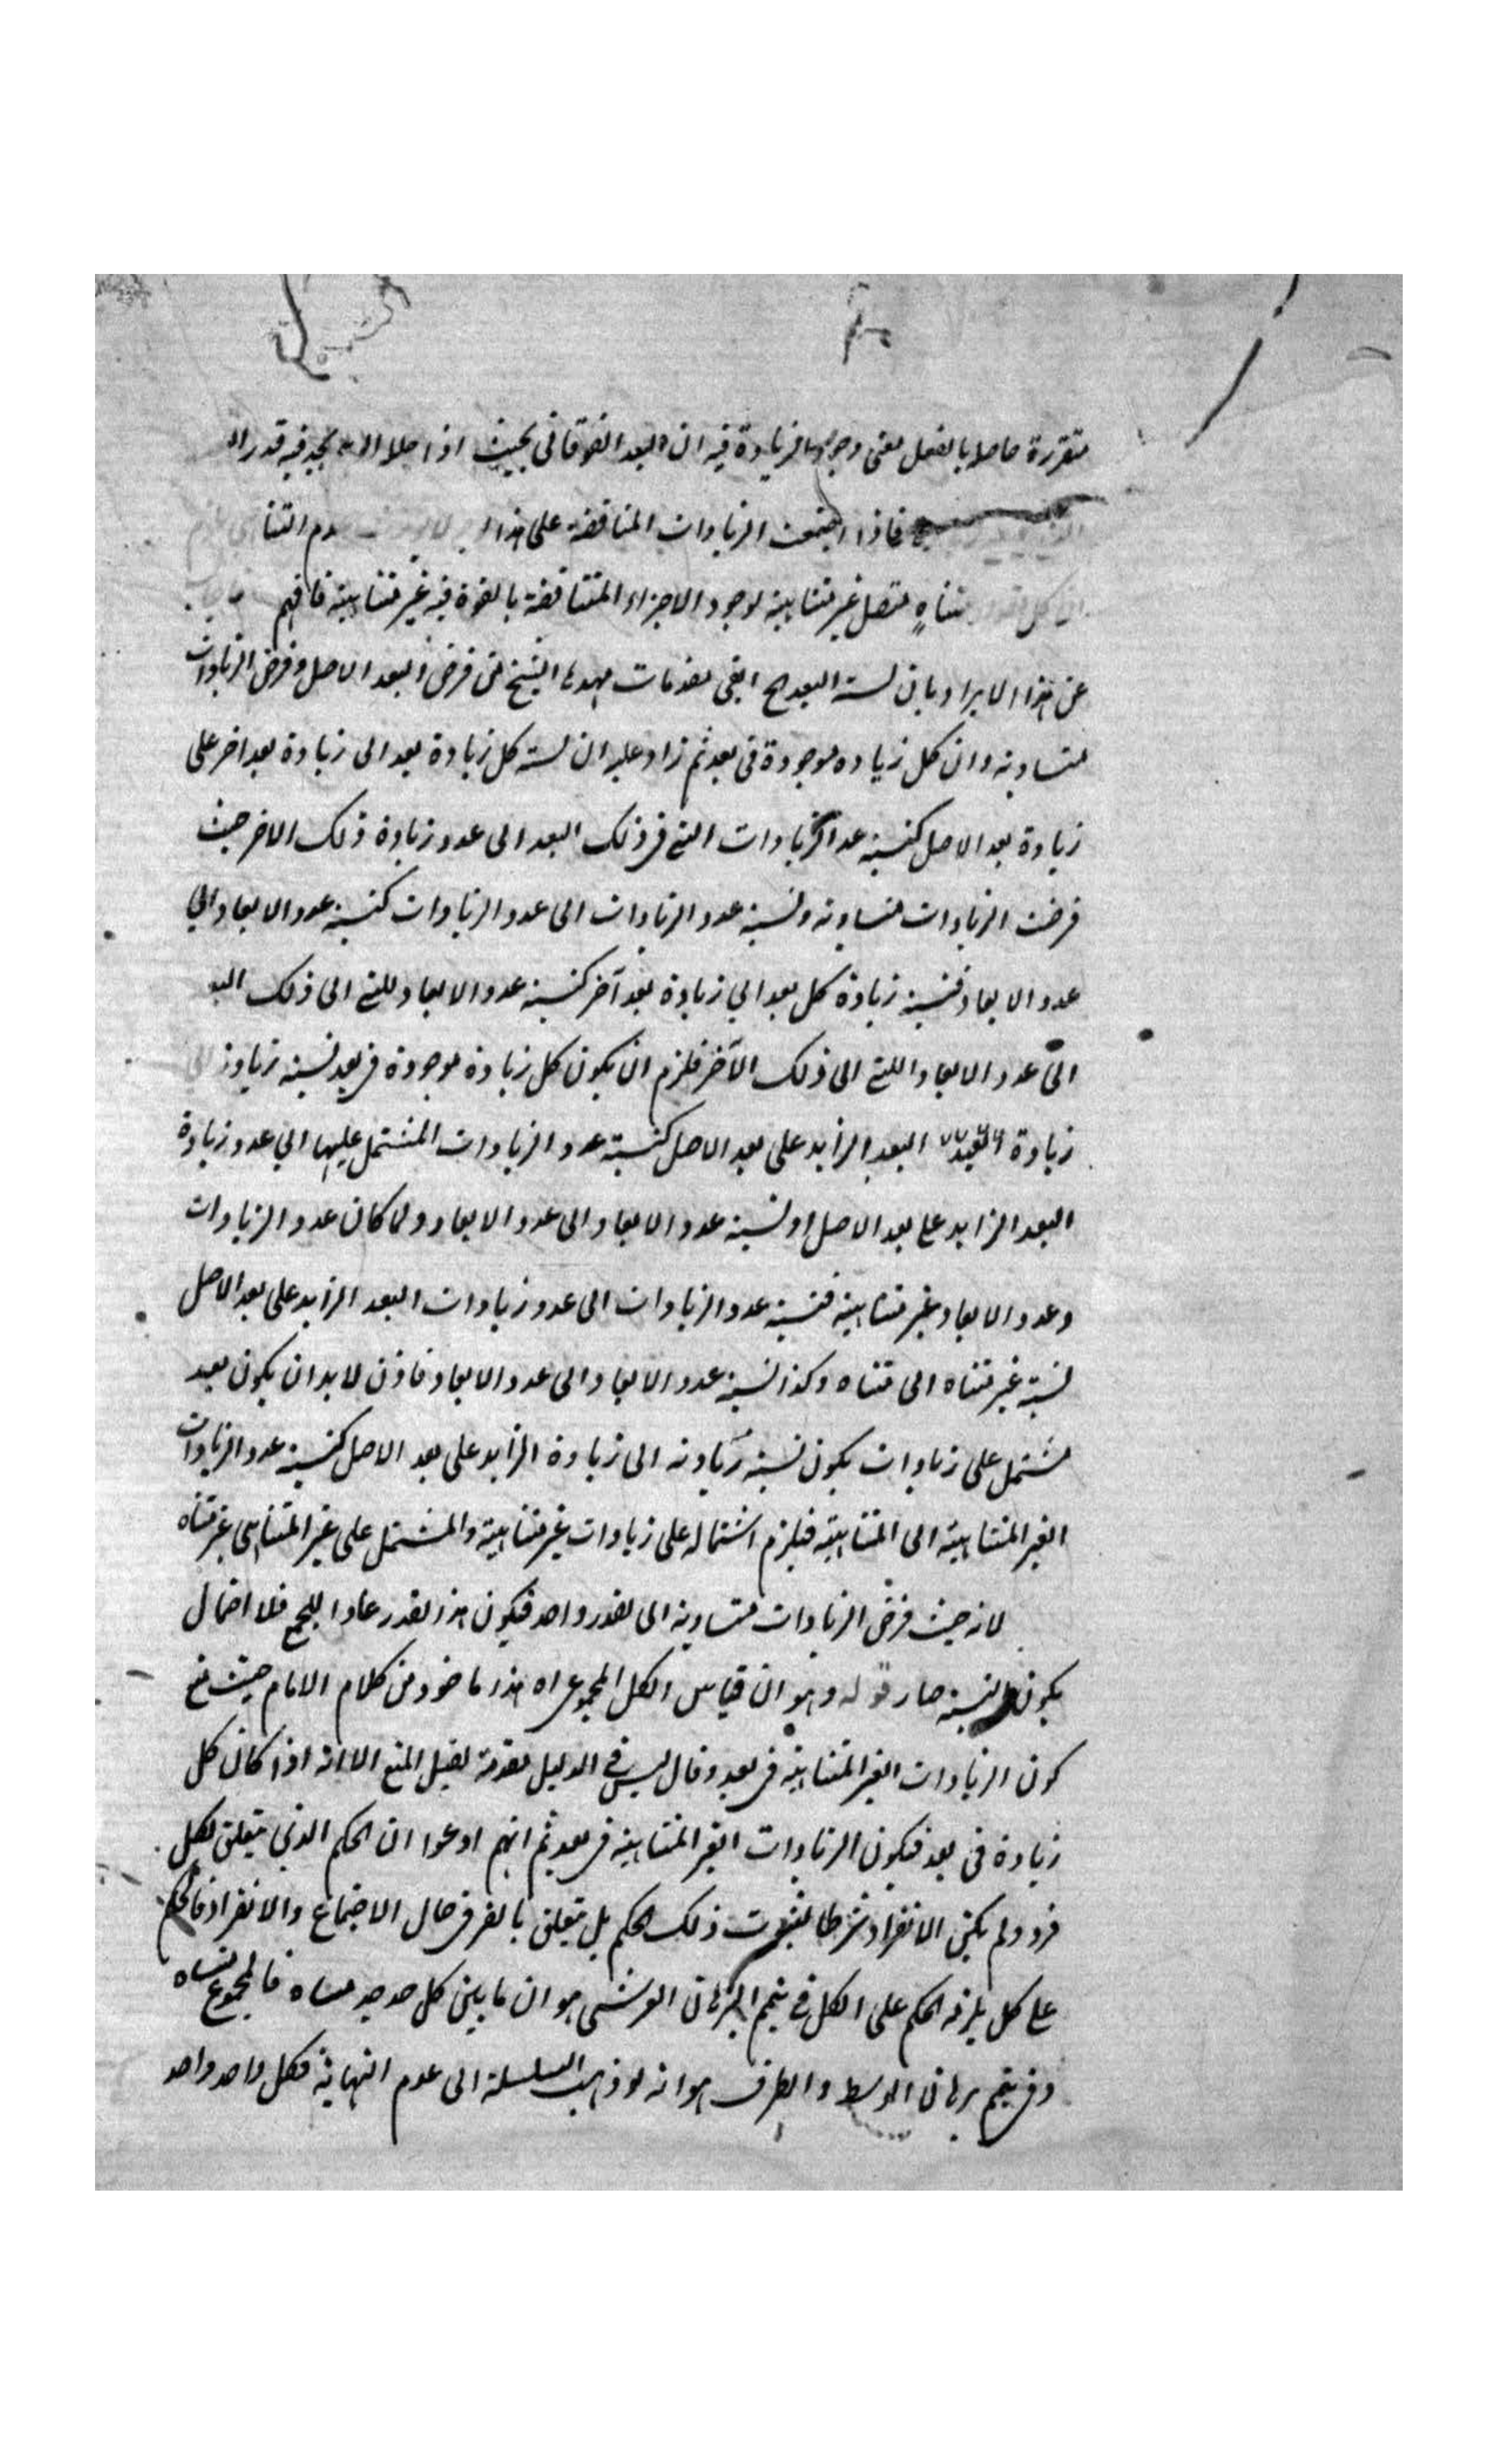 متقررة حاصلا بالفعل معنى وجود الزيادة فيه ان البعد الفوقاني بحيث اذا حللا يجد فيه قدر
فاذا اجتمعت الزيادات المتناقصة على هذا
متناهٍ متصل غير متناهية لوجود الاجزاء المتناقصة بالقوة فيه غير متناهية فافهم
عن هذا الايراد بان نسبة البعد ابقى مقدمات مهدها الشيخ من فرض البعد الاصل وفرض الزيادات
متساوية وان كل زياده موجودة في بعد ثم زاد عليه ان نسبة كل زيادة بعد الى زيادة بعد اخر على
زيادة بعد الاصل كنسبة عدد الزيادات التي في ذلك البعد الى عدد زيادة ذلك الاخر حيث
فرضت الزيادات متساوية ونسبة عدد الزيادات الى عدد الزيادات كنسبة عدد الابعاد الي
عدد الابعاد فنسبة زيادة كل بعد الي زيادة بعد آخر كنسبة عدد الابعاد للتي الى ذلك البعد
الى عدد الابعاد اللتي الى ذلك الآخر فلزم ان يكون كل زيادة موجودة في بعد نسبة زيادة
زيادة البعد الزايد على بعد الاصل كنسبة عدد الزيادات المشتمل عليها الي عدد زيادة
البعد الزايد على بعد الاصل او نسبة عدد الابعاد الى عدد الابعاد ولما كان عدد الزيادات
وعدد الابعاد غير متناهية فنسبة عدد الزيادات الى عدد زيادات البعد الزايد على بعد الاصل
نسبة غير متناه الى متناه وكذا نسبة عدد الابعاد الى عدد الابعاد فاذن لابد ان يكون بعد
مشتمل على زيادات يكون نسبة زيادته الى زيادة الزايد على بعد الاصل كنسبة عدد الزيادات
الغير المتناهية الى المتناهية فيلزم اشتماله على زيادات غير متناهية والمشتمل على غير المتناهى غير متناه
لانه حيث فرض الزيادات متساوية الى لقدر واحد فيكون هذا لقدر عادا للجميع فلا احتمال
يكون النسبة صار قوله وهو ان قياس الكل المجموعى اه هذا ماخوذ من كلام الامام حيث منع
كون الزيادات الغير المتناهية في بعد وقال ليس في الدليل مقدمة لقبل المنع الا انه اذا كان كل
زيادة في بعد فيكون الزيادات الغير المتناهية في بعد ثم انهم ادعوا ان الحكم الذي يتعلق بكل
فرد ولم يكن الانفراد شرطا لثبوت ذلك الحكم بل يتعلق بالفرد في حال الاجتماع والانفراد فالحكم
على كل يلزمه الحكم على الكل في يتم البرهان العرشى هو ان ما بين كل حد حد متناه فالمجموع متناه
وفي يتم برهان الوسط والطرف هو انه لو ذهب السلسلة الى عدم النهاية فكل واحد واحد